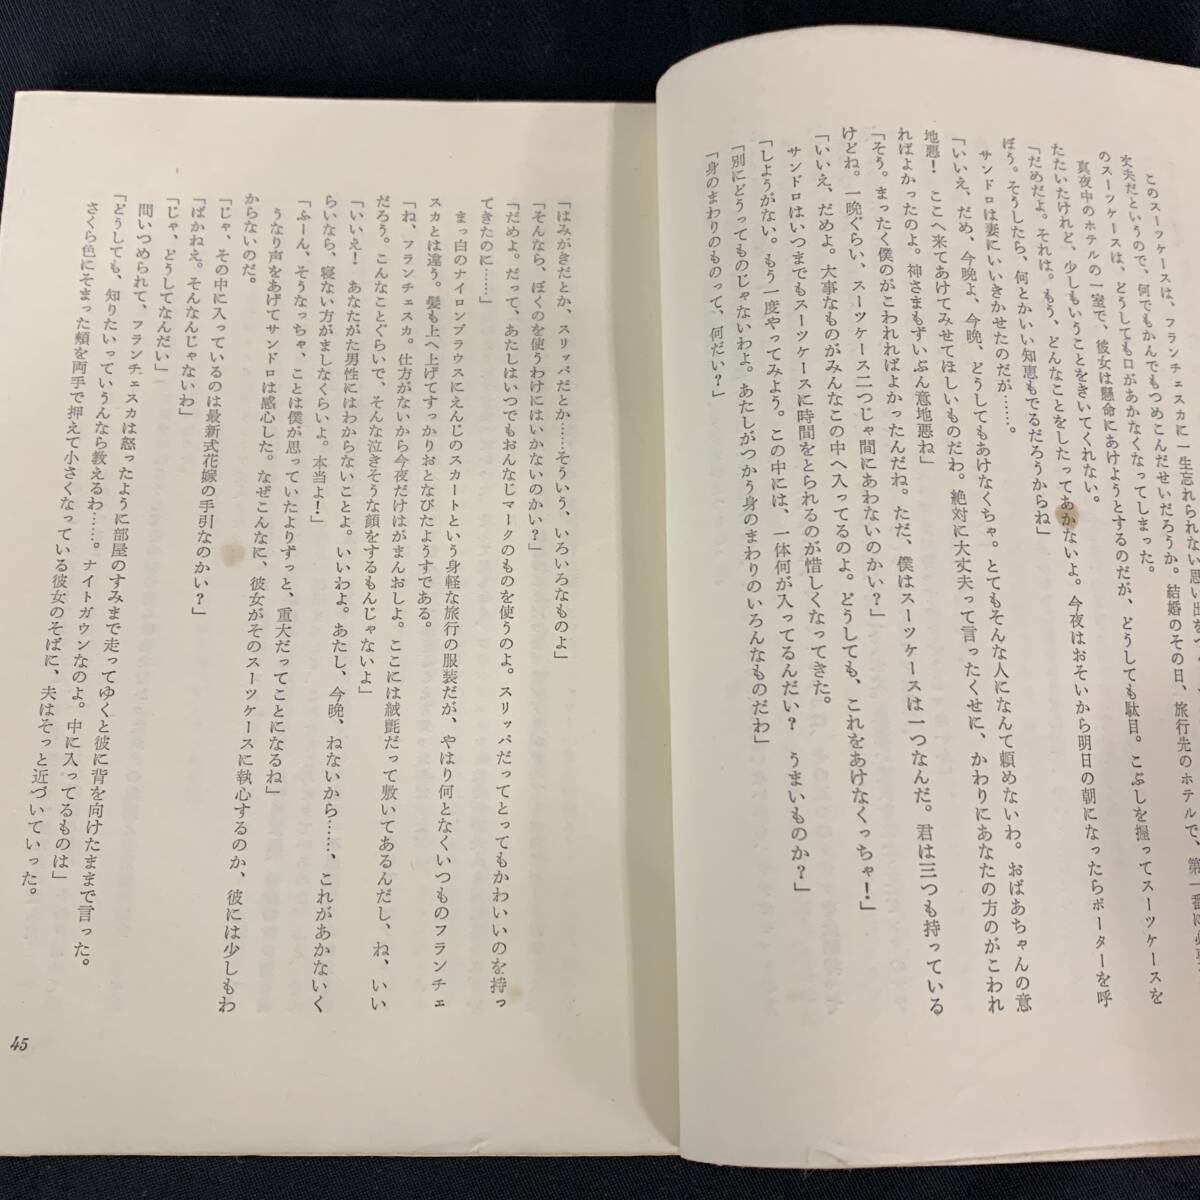 このスーツケースは、フランチェスカに一生忘れられない思い出を
丈夫だというので、何でもかんでもつめこんだせいだろうか。結婚のその日、旅行先のホテルで、第一番に
のスーツケースは、どうしても口があかなくなってしまった。
真夜中のホテルの一室で、彼女は懸命にあけようとするのだが、どうしても駄目。こぶしを握ってスーツケースを
たたいたけれど、少しもいうことをきいてくれない。
「だめだよ。それは。もう、どんなことをしたってあかないよ。今夜はおそいから明日の朝になったらポーターを呼
ぼう。そうしたら、何とかいい知恵もでるだろうからね」
サンドロは妻にいいきかせたのだが……。
「いいえ、だめ、今晩よ、今晩、どうしてもあけなくちゃ。とてもそんな人になんて頼めないわ。おばあちゃんの意
地悪！　ここへ来てあけてみせてほしいものだわ。絶対に大丈夫って言ったくせに、かわりにあなたの方のがこわれ
ればよかったのよ。神さまもずいぶん意地悪ね」
「そう。まったく僕のがこわれればよかったんだね。ただ、僕はスーツケースは一つなんだ。君は三つも持っている
けどね。一晩ぐらい、スーツケース二つじゃ間にあわないのかい？」
「いいえ、だめよ。大事なものがみんなこの中へ入ってるのよ。どうしても、これをあけなくっちゃ！」
サンドロはいつまでもスーツケースに時間をとられるのが惜しくなってきた。
「しようがない。もう一度やってみよう。この中には、一体何が入ってるんだい？　うまいものか？」
「別にどうってものじゃないわよ。あたしがつかう身のまわりのいろんなものだわ」
「身のまわりのものって、何だい？」
「はみがきだとか、スリッパだとか……そういう、いろいろなものよ」
「そんなら、ぼくのを使うわけにはいかないのかい？」
「だめよ。だって、あたしはいつでもおんなじマークのものを使うのよ。スリッパだってとってもかわいいのを持っ
てきたのに……」
まっ白のナイロンブラウスにえんじのスカートという身軽な旅行の服装だが、やはり何となくいつものフランチェ
スカとは違う。髪も上へ上げてすっかりおとなびたようすである。
「ね、フランチェスカ。仕方がないから今夜だけはがまんおしよ。ここには絨毯だって敷いてあるんだし、ね、いい
だろう。こんなことぐらいで、そんな泣きそうな顔をするもんじゃないよ」
「いいえ！　あなたがた男性にはわからないことよ。いいわよ。あたし、今晩、ねないから……、これがあかないく
らいなら、寝ない方がましなくらいよ。本当よ！」
「ふーん、そうなっちゃ、ことは僕が思っていたよりずっと、重大だってことになるね」
うなり声をあげてサンドロは感心した。なぜこんなに、彼女がそのスーツケースに執心するのか、彼には少しもわ
からないのだ。
「じゃ、その中に入っているのは最新式花嫁の手引なのかい？」
「ばかねえ。そんなんじゃないわ」
「じゃ、どうしてなんだい」
問いつめられて、フランチェスカは怒ったように部屋のすみまで走ってゆくと彼に背を向けたままで言った。
「どうしても、知りたいっていうんなら教えるわ……。ナイトガウンなのよ。中に入ってるものは」
さくら色にそまった頬を両手で押えて小さくなっている彼女のそばに、夫はそっと近づいていった。
45